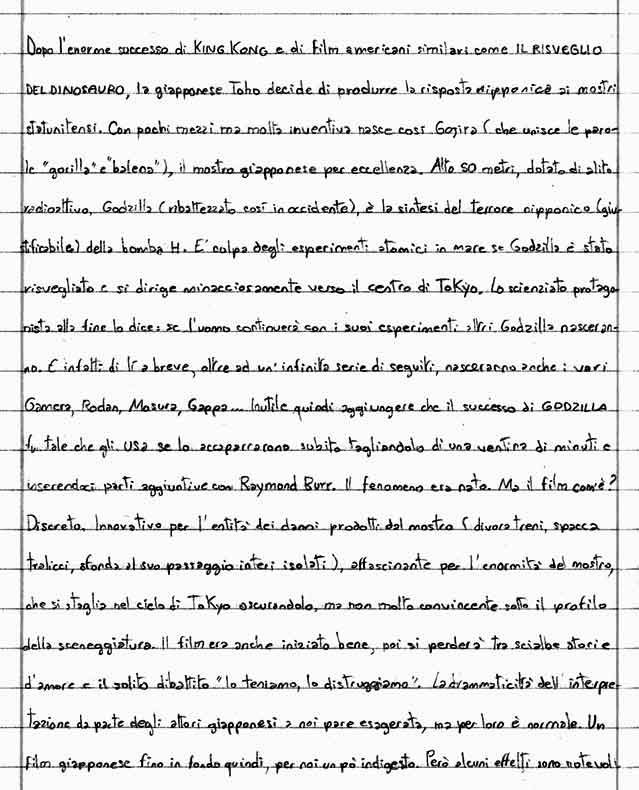 Dopo l'enorme successo di KING KONG e di film americani similari come IL RISVEGLIO
DEL DINOSAURO, la giapponese Toho decide di produrre la risposta nipponica ai mostri
statunitensi. Con pochi mezzi ma molta inventiva nasce così Gojira (che unisce le paro-
le "gorilla" e "balena"), il mostro giapponese per eccellenza. Alto 50 metri, dotato di alito
radioattivo, Godzilla (ribattezzato così in occidente), è la sintesi del terrore nipponico (giu-
stificabile) della bomba H. E' colpa degli esperimenti atomici in mare se Godzilla è stato
risvegliato e si dirige minacciosamente verso il centro di Tokyo. Lo scienziato protago-
nista alla fine lo dice: se l'uomo continuerà con i suoi esperimenti altri Godzilla nasceran-
no. E infatti di lì a breve, oltre ad un' infinita serie di seguiti, nasceranno anche i vari
Gamera, Rodan, Mosura, Gappa... Inutile quindi aggiungere che il successo di GODZILLA
fu tale che gli USA se lo accaparrarono subito tagliandolo di una ventina di minuti e
inserendoci parti aggiuntive con Raymond Burr. Il fenomeno era nato. Ma il film com'è?
Discreto. Innovativo per l'entità dei danni prodotti dal mostro (divora treni, spacca
tralicci, sfonda al suo passaggio interi isolati), affascinante per l'enormità del mostro,
che si staglia nel cielo di Tokyo oscurandolo, ma non molto convincente sotto il profilo
della sceneggiatura. Il film era anche iniziato bene, poi si perderà tra scialbe storie
d'amore e il solito dibattito "lo teniamo, lo distruggiamo". La drammaticità dell' interpre-
tazione da parte degli attori giapponesi a noi pare esagerata, ma per loro è normale. Un
film giapponese fino in fondo quindi, per noi un pò indigesto. Però alcuni effetti sono notevoli